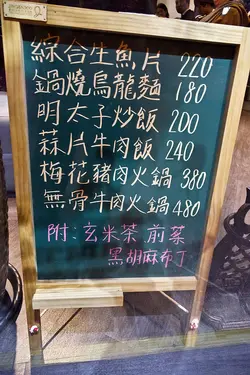 綜合生魚片 220
鍋燒烏龍麵 180
明太子炒飯 200
蒜片牛肉飯 240
梅花豬肉火鍋 380
無骨牛肉火鍋 480
附:玄米茶 前菜
黑胡麻布丁